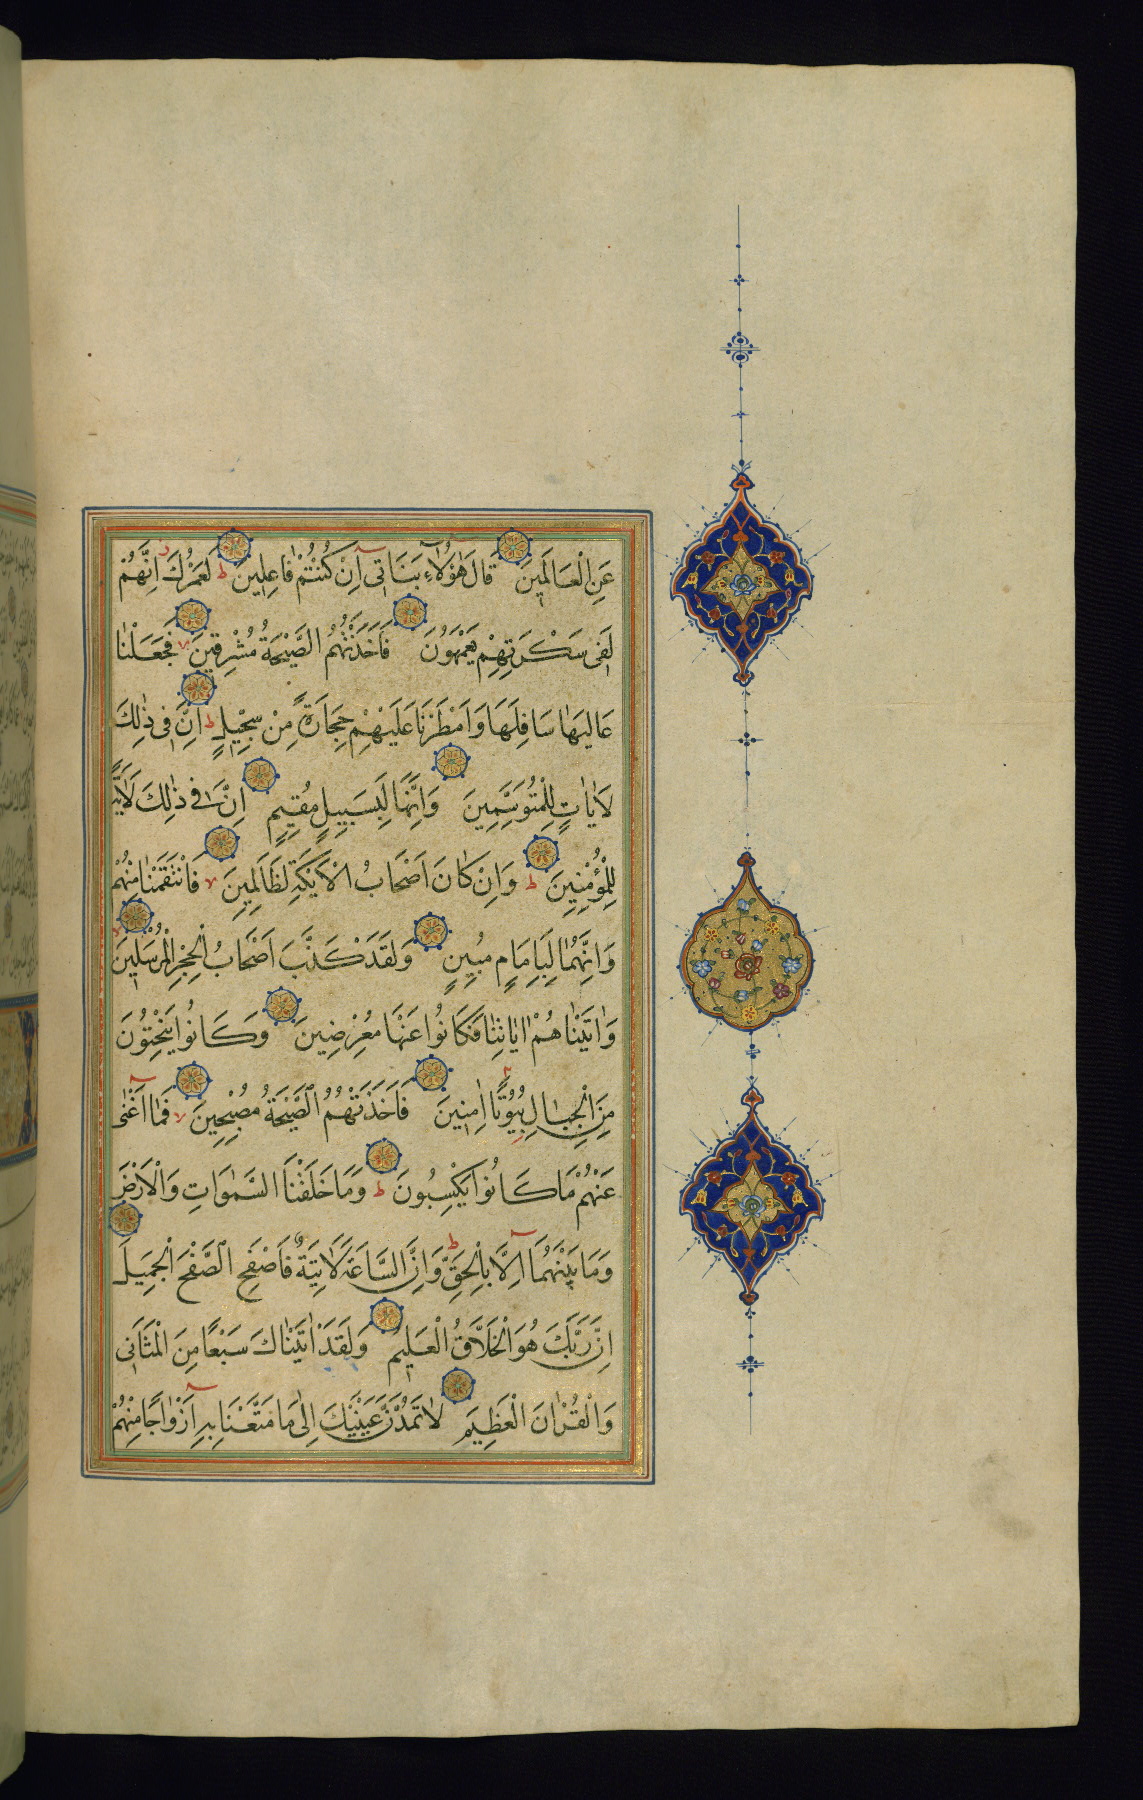 عَنِ الْعَالَمِينَ قَالَ هٰؤُلَاءِ بَنَاتِى اِنْ كُنْتُمْ فَاعِلِينَ ط لَعَمْرُكَ اِنَّهُمْ
لَفِى سَكْرَتِهِمْ يَعْمَهُونَ فَاَخَذَتْهُمُ الصَّيْحَةُ مُشْرِقِينَ لا فَجَعَلْنَا
عَالِيَهَا سَافِلَهَا وَاَمْطَرْنَا عَلَيْهِمْ حِجَارَةً مِنْ سِجِّيلٍ ط اِنَّ فِى ذٰلِكَ
لَاٰيَاتٍ لِلْمُتَوَسِّمِينَ وَاِنَّهَا لَبِسَبِيلٍ مُقِيمٍ اِنَّ فِى ذٰلِكَ لَاٰيَةً
لِلْمُؤْمِنِينَ ط وَاِنْ كَانَ اَصْحَابُ الْاَيْكَةِ لَظَالِمِينَ لا فَانْتَقَمْنَا مِنْهُمْ
وَاِنَّهُمَا لَبِاِمَامٍ مُبِينٍ وَلَقَدْ كَذَّبَ اَصْحَابُ الْحِجْرِ الْمُرْسَلِينَ
وَاٰتَيْنَاهُمْ اٰيَاتِنَا فَكَانُوا عَنْهَا مُعْرِضِينَ وَكَانُوا يَنْحِتُونَ
مِنَ الْجِبَالِ بُيُوتًا اٰمِنِينَ فَاَخَذَتْهُمُ الصَّيْحَةُ مُصْبِحِينَ لا فَمَا اَغْنٰى
عَنْهُمْ مَا كَانُوا يَكْسِبُونَ ط وَمَا خَلَقْنَا السَّمٰوَاتِ وَالْاَرْضَ
وَمَا بَيْنَهُمَا اِلَّا بِالْحَقِّ ط وَاِنَّ السَّاعَةَ لَاٰتِيَةٌ فَاصْفَحِ الصَّفْحَ الْجَمِيلَ
اِنَّ رَبَّكَ هُوَ الْخَلَّاقُ الْعَلِيمُ وَلَقَدْ اٰتَيْنَاكَ سَبْعًا مِنَ الْمَثَانِى
وَالْقُرْاٰنَ الْعَظِيمَ لَا تَمُدَّنَّ عَيْنَيْكَ اِلٰى مَا مَتَّعْنَا بِهِ اَزْوَاجًا مِنْهُمْ